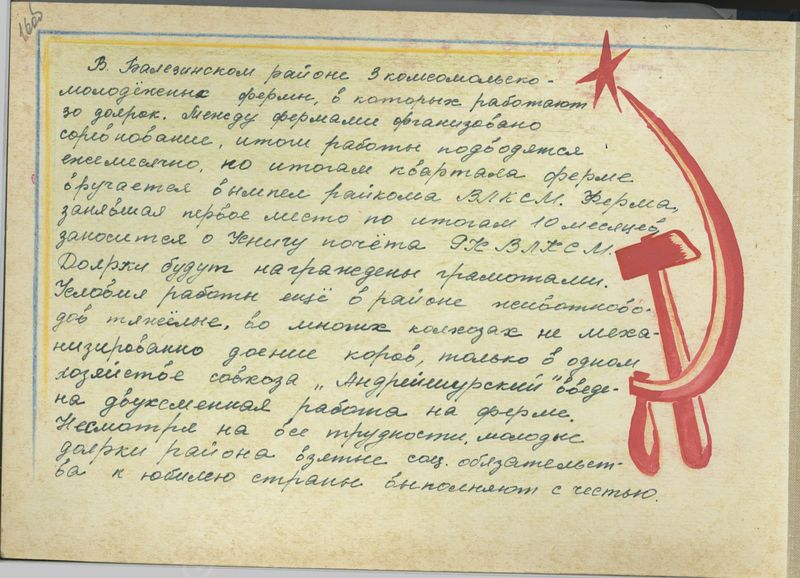 166б
В Балезинском районе 3 комсомольско-
молодёжных фермы, в которых работают
30 доярок. Между фермами организовано
соревнование, итоги работы подводятся
ежемесячно, по итогам квартала ферме
вручается вымпел райкома ВЛКСМ. Ферма,
занявшая первое место по итогам 10 месяцев,
заносится в Книгу почёта РК ВЛКСМ.
Доярки будут награждены грамотами.
Условия работы ещё в районе животново-
дов тяжёлые, во многих колхозах не меха-
низированно доение коров, только в одном
хозяйстве совхоза „Андрейшурский" введе-
на двухсменная работа на ферме.
Несмотря на все трудности, молодые
доярки района взятые соц. обязательст-
ва к юбилею страны выполняют с честью.